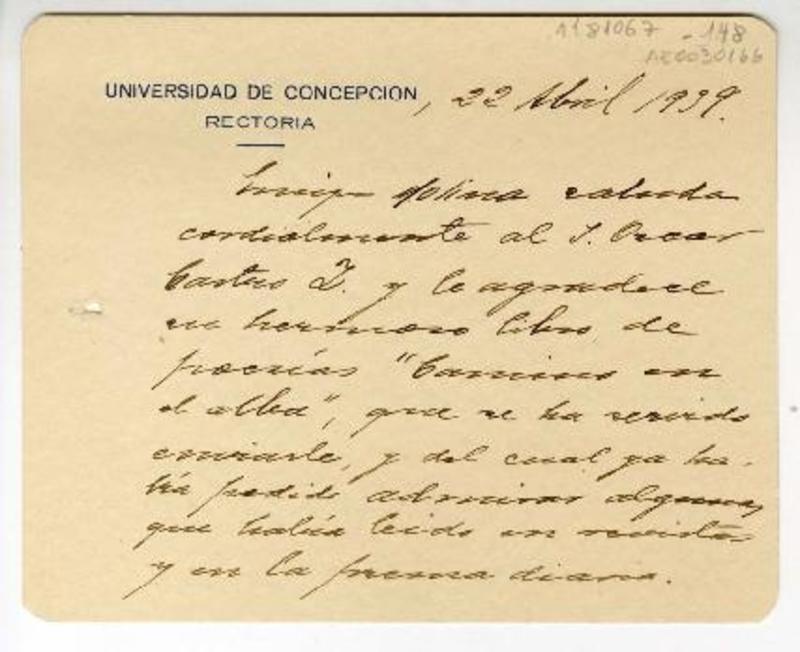 1181067 - 148
AE0030166
UNIVERSIDAD DE CONCEPCION
RECTORIA
, 22 Abril 1939.
Enrique Molina saluda
cordialmente al S. Oscar
Castro Z. y le agradece el
su hermoso libro de
poesías "Camino en
el alba", que se ha servido
enviarle, y del cual ya ha-
bía podido admirar algunas
que había leído en revistas
y en la prensa diaria.